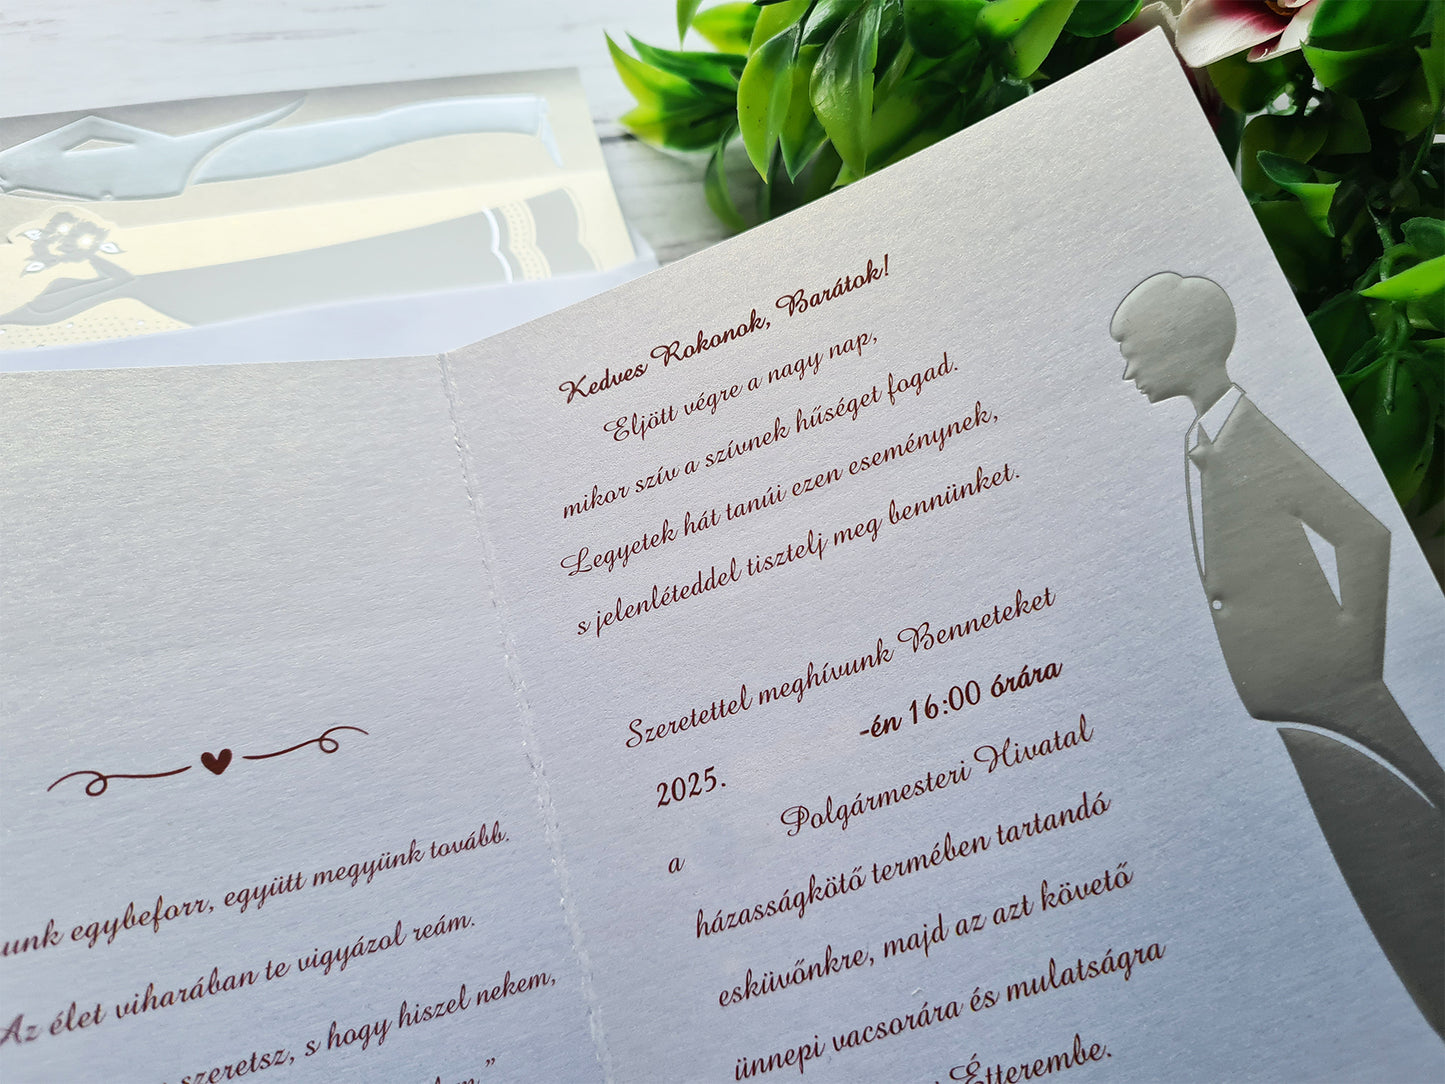 unk egybeforr, együtt megyünk tovább.
Az élet viharában te vigyázol reám.
szeretsz, s hogy hiszel nekem,
Kedves Rokonok, Barátok!
Eljött végre a nagy nap,
mikor szív a szívnek hűséget fogad.
Legyetek hát tanúi ezen eseménynek,
s jelenléteddel tisztelj meg bennünket.
Szeretettel meghívunk Benneteket
2025. -én 16:00 órára
a Polgármesteri Hivatal
házasságkötő termében tartandó
esküvőnkre, majd az azt követő
ünnepi vacsorára és mulatságra
Étterembe.